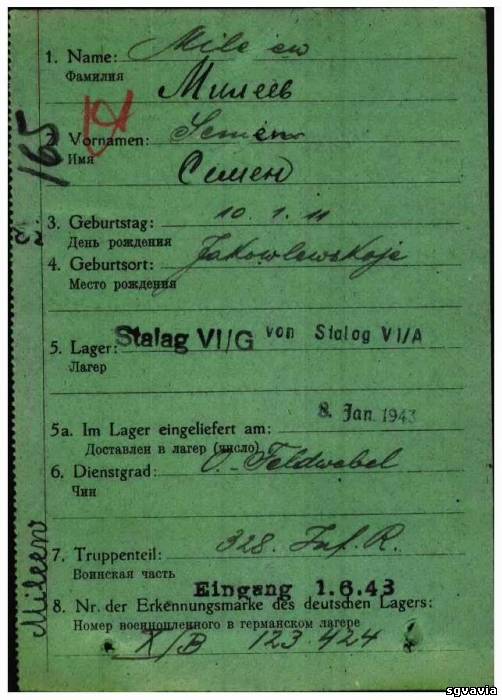 1. Name: Mileew
Фамилия
Милеев
2. Vornamen: Semën
Имя
Семен
3. Geburtstag: 10. 1. 11
День рождения
4. Geburtsort: Jakowlewskoje
Место рождения
5. Lager: Stalag VI/G von Stalag VI/A
Лагерь
5a. Im Lager eingeliefert am: 8. Jan. 1943
Доставлен в лагерь (число)
6. Dienstgrad: O.-Feldwebel
Чин
7. Truppenteil: 328. Inf. R.
Воинская часть
Eingang 1.6.43
8. Nr. der Erkennungsmarke des deutschen Lagers:
Номер военнопленного в германском лагере
X/B 123.424
165
Mileen
sgvavia